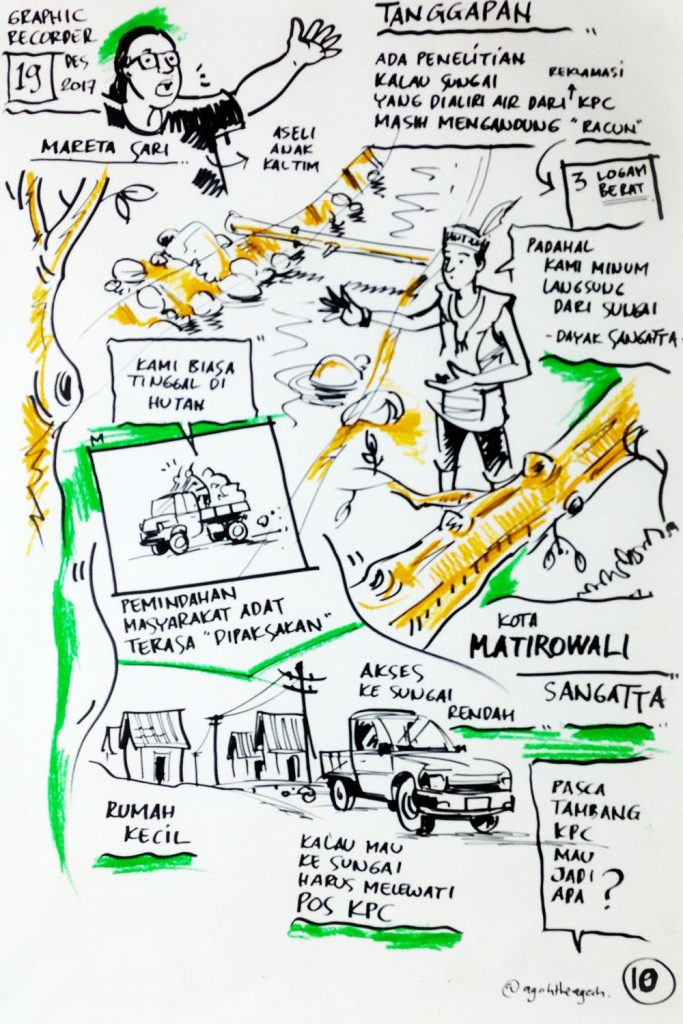 GRAPHIC
RECORDER
19
DES
2017
MARETA SARI
ASELI
ANAK
KALTIM
TANGGAPAN
ADA PENELITIAN
KALAU SUNGAI
REKLAMASI
YANG DIALIRI AIR DARI KPC
MASIH MENGANDUNG "RACUN"
3 LOGAM
BERAT
PADAHAL
KAMI MINUM
LANGSUNG
DARI SUNGAI
- DAYAK SANGATTA -
KAMI BIASA
TINGGAL DI
HUTAN
PEMINDAHAN
MASYARAKAT ADAT
TERASA "DIPAKSAKAN"
KOTA
MATIROWALI
SANGATTA
AKSES
KE SUNGAI
RENDAH
RUMAH
KECIL
KALAU MAU
KE SUNGAI
HARUS MELEWATI
POS KPC
PASCA
TAMBANG
KPC
MAU
JADI
APA ?
10